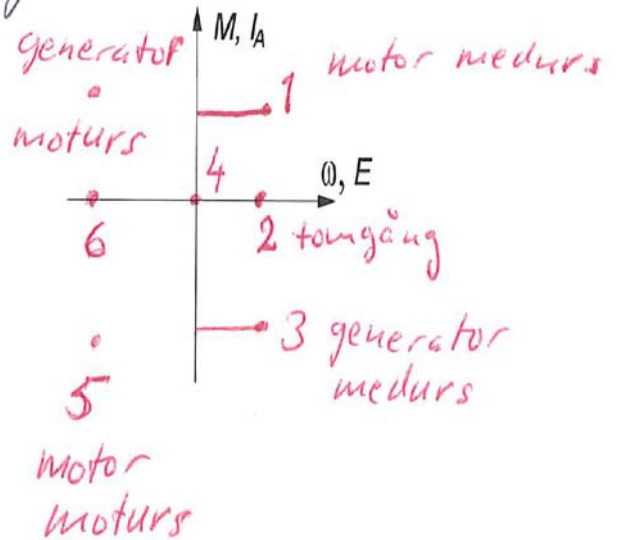 M, I_A
generator
moturs
motor medurs
1
4
ω, E
6
2 tomgång
3 generator
medurs
5
motor
moturs